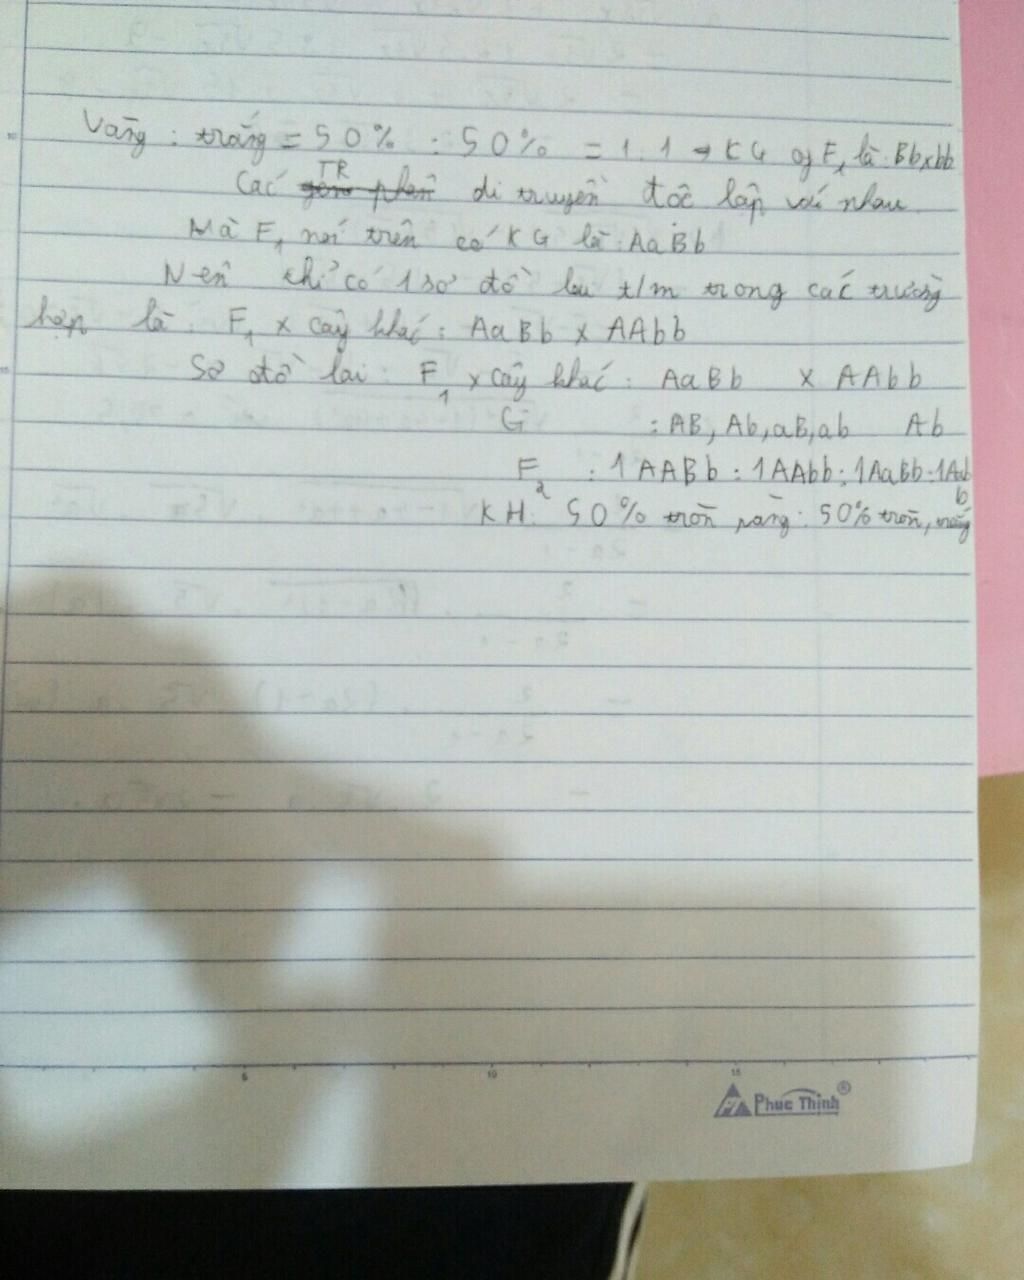 Vàng : trắng = 50% : 50% = 1:1 → KG of F1 là: Bb x bb
Các TR di truyền độc lập với nhau
Mà F1 nói trên có KG là: AaBb
Nên chỉ có 1 sơ đồ lai t/m trong các trường
hợp là F1 x cây khác: AaBb x AAbb
Sơ đồ lai: F1 x cây khác: AaBb x AAbb
G : AB, Ab, aB, ab Ab
F2 : 1AABb : 1AAbb : 1AaBb : 1Aabb
KH: 50% tròn, vàng : 50% tròn, trắng
10
15
5 10 15
Phuc Thinh®